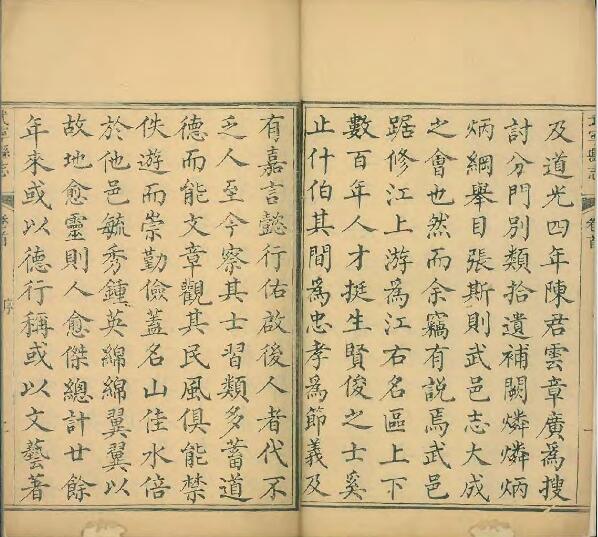 及道光四年陳君雲章廣爲搜
討分門別類拾遺補闕燐燐炳
炳綱舉目張斯則武邑志大成
之會也然而余竊有說焉武邑
踞修江上游爲江右名區上下
數百年人才挺生賢俊之士奚
止什伯其間爲忠孝爲節義及
有嘉言懿行佑啟後人者代不
乏人至今察其士習類多蓄道
德而能文章觀其民風俱能禁
佚遊而崇勤儉蓋名山佳水倍
於他邑毓秀鍾英綿綿翼翼以
故地愈靈則人愈傑總計廿餘
年來或以德行稱或以文藝著
武寧縣志
卷首
序